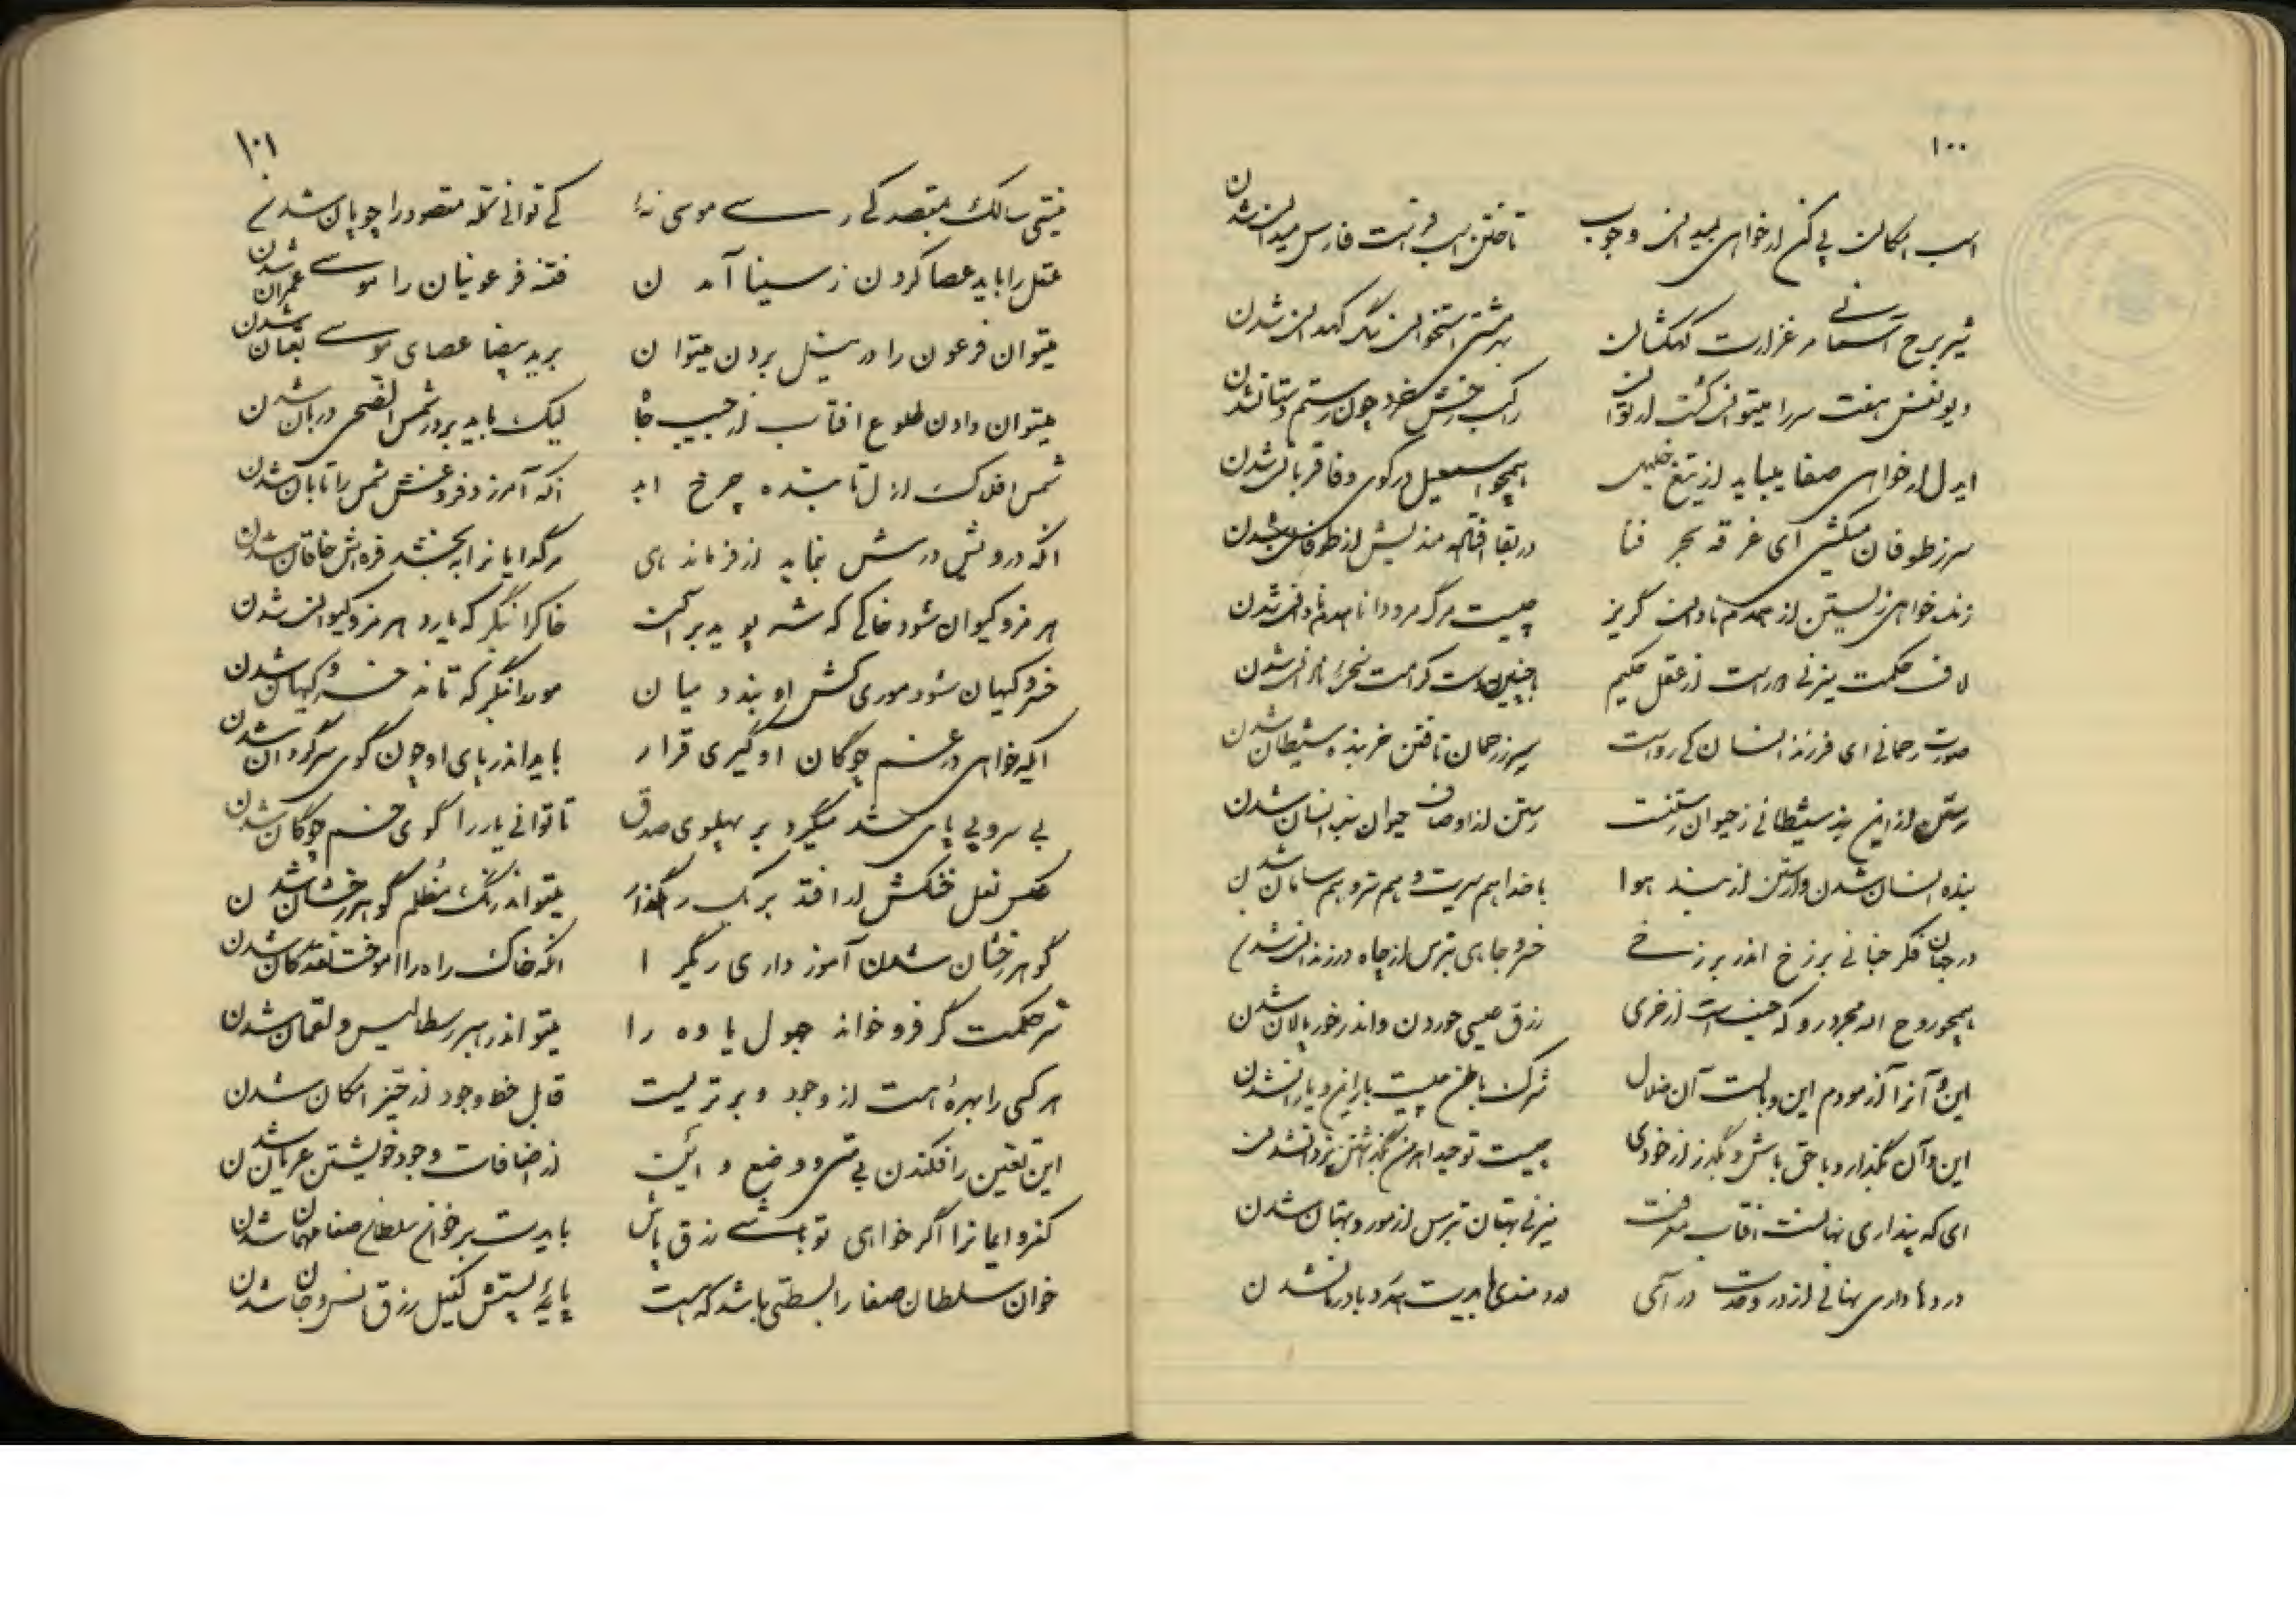 ۱۰۰
اسب امکان پی کن ار خواهی بمیدان وجوب تاختن اسب و انت فارس میدان شدن
شیر برج آسمانی مرغزارت کهکشان بهر مشتی استخوان سگ کهدان شدن
دیو نفس هفت سر را میتوان کشت ار توان رخش خرد چون رستم دستان شدن
ایدل ار خواهی صفا میباید از تیغ خلیل همچو اسمعیل در کوی وفا قربان شدن
سر ز طوفان میکشی ای غرقه بحر فنا در بقا مندیش از طوفان شدن
زنده خواهی زیستن از همدم نادان گریز چیست مرگ مرد دانا همدم نادان شدن
لاف حکمت میزنی دور است از عقل حکیم شدن
صورت رحمانی ای فرزند انسان کی رواست سر ز رحمان تافتن خر بنده شیطان شدن
رستن از این بند شیطانی ز حیوان رستنست رستن از اوصاف حیوان انسان شدن
بنده انسان شدن وارستن از بند هوا با خدا هم سریت و هم سر و هم سامان شدن
در جنان فکر جنانی برزخ اندر برزخی جاهی بترس از چاه و زندان شدن
همچو روح اله مجرد رو که از خری رزق عیسی خوردن و اندر خور پالان شدن
این و آنرا آزمودم این وبالست آن ضلال شرک باطن چیست با این و با آن شدن
این و آن بگذار و با حق باش و بگذر از خودی چیست توحید اهرمن بگذشتن یزدان شدن
ای که پنداری نهانست آفتاب معرفت میزنی بهتان بترس از مور و بهتان شدن
دردها داری نهانی از در وحدت در آی دردمندی بایدت با درمان شدن
۱۰۱
نیستی سالک بمقصد کی رسی موسی نه‌ا کی توانی گله مقصود را چوپان شدن
عقل را باید عصا کردن ز سینا آمدن فتنه فرعونیان را موسی عمران شدن
میتوان فرعون را در نیل بردن میتوان بر ید بیضا عصای موسی ثعبان شدن
میتوان دادن طلوع افتاب از جیب جان لیک باید بر در شمس الضحی دربان شدن
شمس افلاک ازل تابنده چرخ ابد انکه آموزد فروغش شمس را تابان شدن
انکه درویشی درش بنماید از فرماندهی مر گدایانرا ببخشد فره‌اش خاقان شدن
هرمز و کیوان شود خاکی که شه پوید بر آن خاکرا بنگر که یارد هرمز و کیوان شدن
خسرو کیهان شود موری کش او بندد میان مور را بنگر که تاند خسرو کیهان شدن
ایکه خواهی در خم چوگان او گیری قرار باید اندر پای او چون گوی سرگردان شدن
بی سر و بی پای شد میگرد بر پهلوی صدق تا توانی یار را گوی خم چوگان شدن
عکس نعل خنگش ار افتد بر سنگ رهگذار میتواند سنگ مظلم گوهر رخشان شدن
گوهر رخشان شدن آموز داری ریگ را انکه خاک راه را آموخت نقد کان شدن
سر حکمت گر فرو خواند جهول یاوه را میتواند رسطالیس و لقمان شدن
هر کسی را بهره است از وجود و برتریست قابل خط وجود از حیز امکان شدن
این تعین را فکندن بی متی و وضع و این از اضافات وجود خویشتن عریان شدن
کفر و ایمانرا اگر خواهی تو باشی رزق پاش بایدت بر خوان سلطان صفا مهمان شدن
خوان سلطان صفا را بسطتی باشد که هست پایه پستش کفیل رزق انس و جان شدن